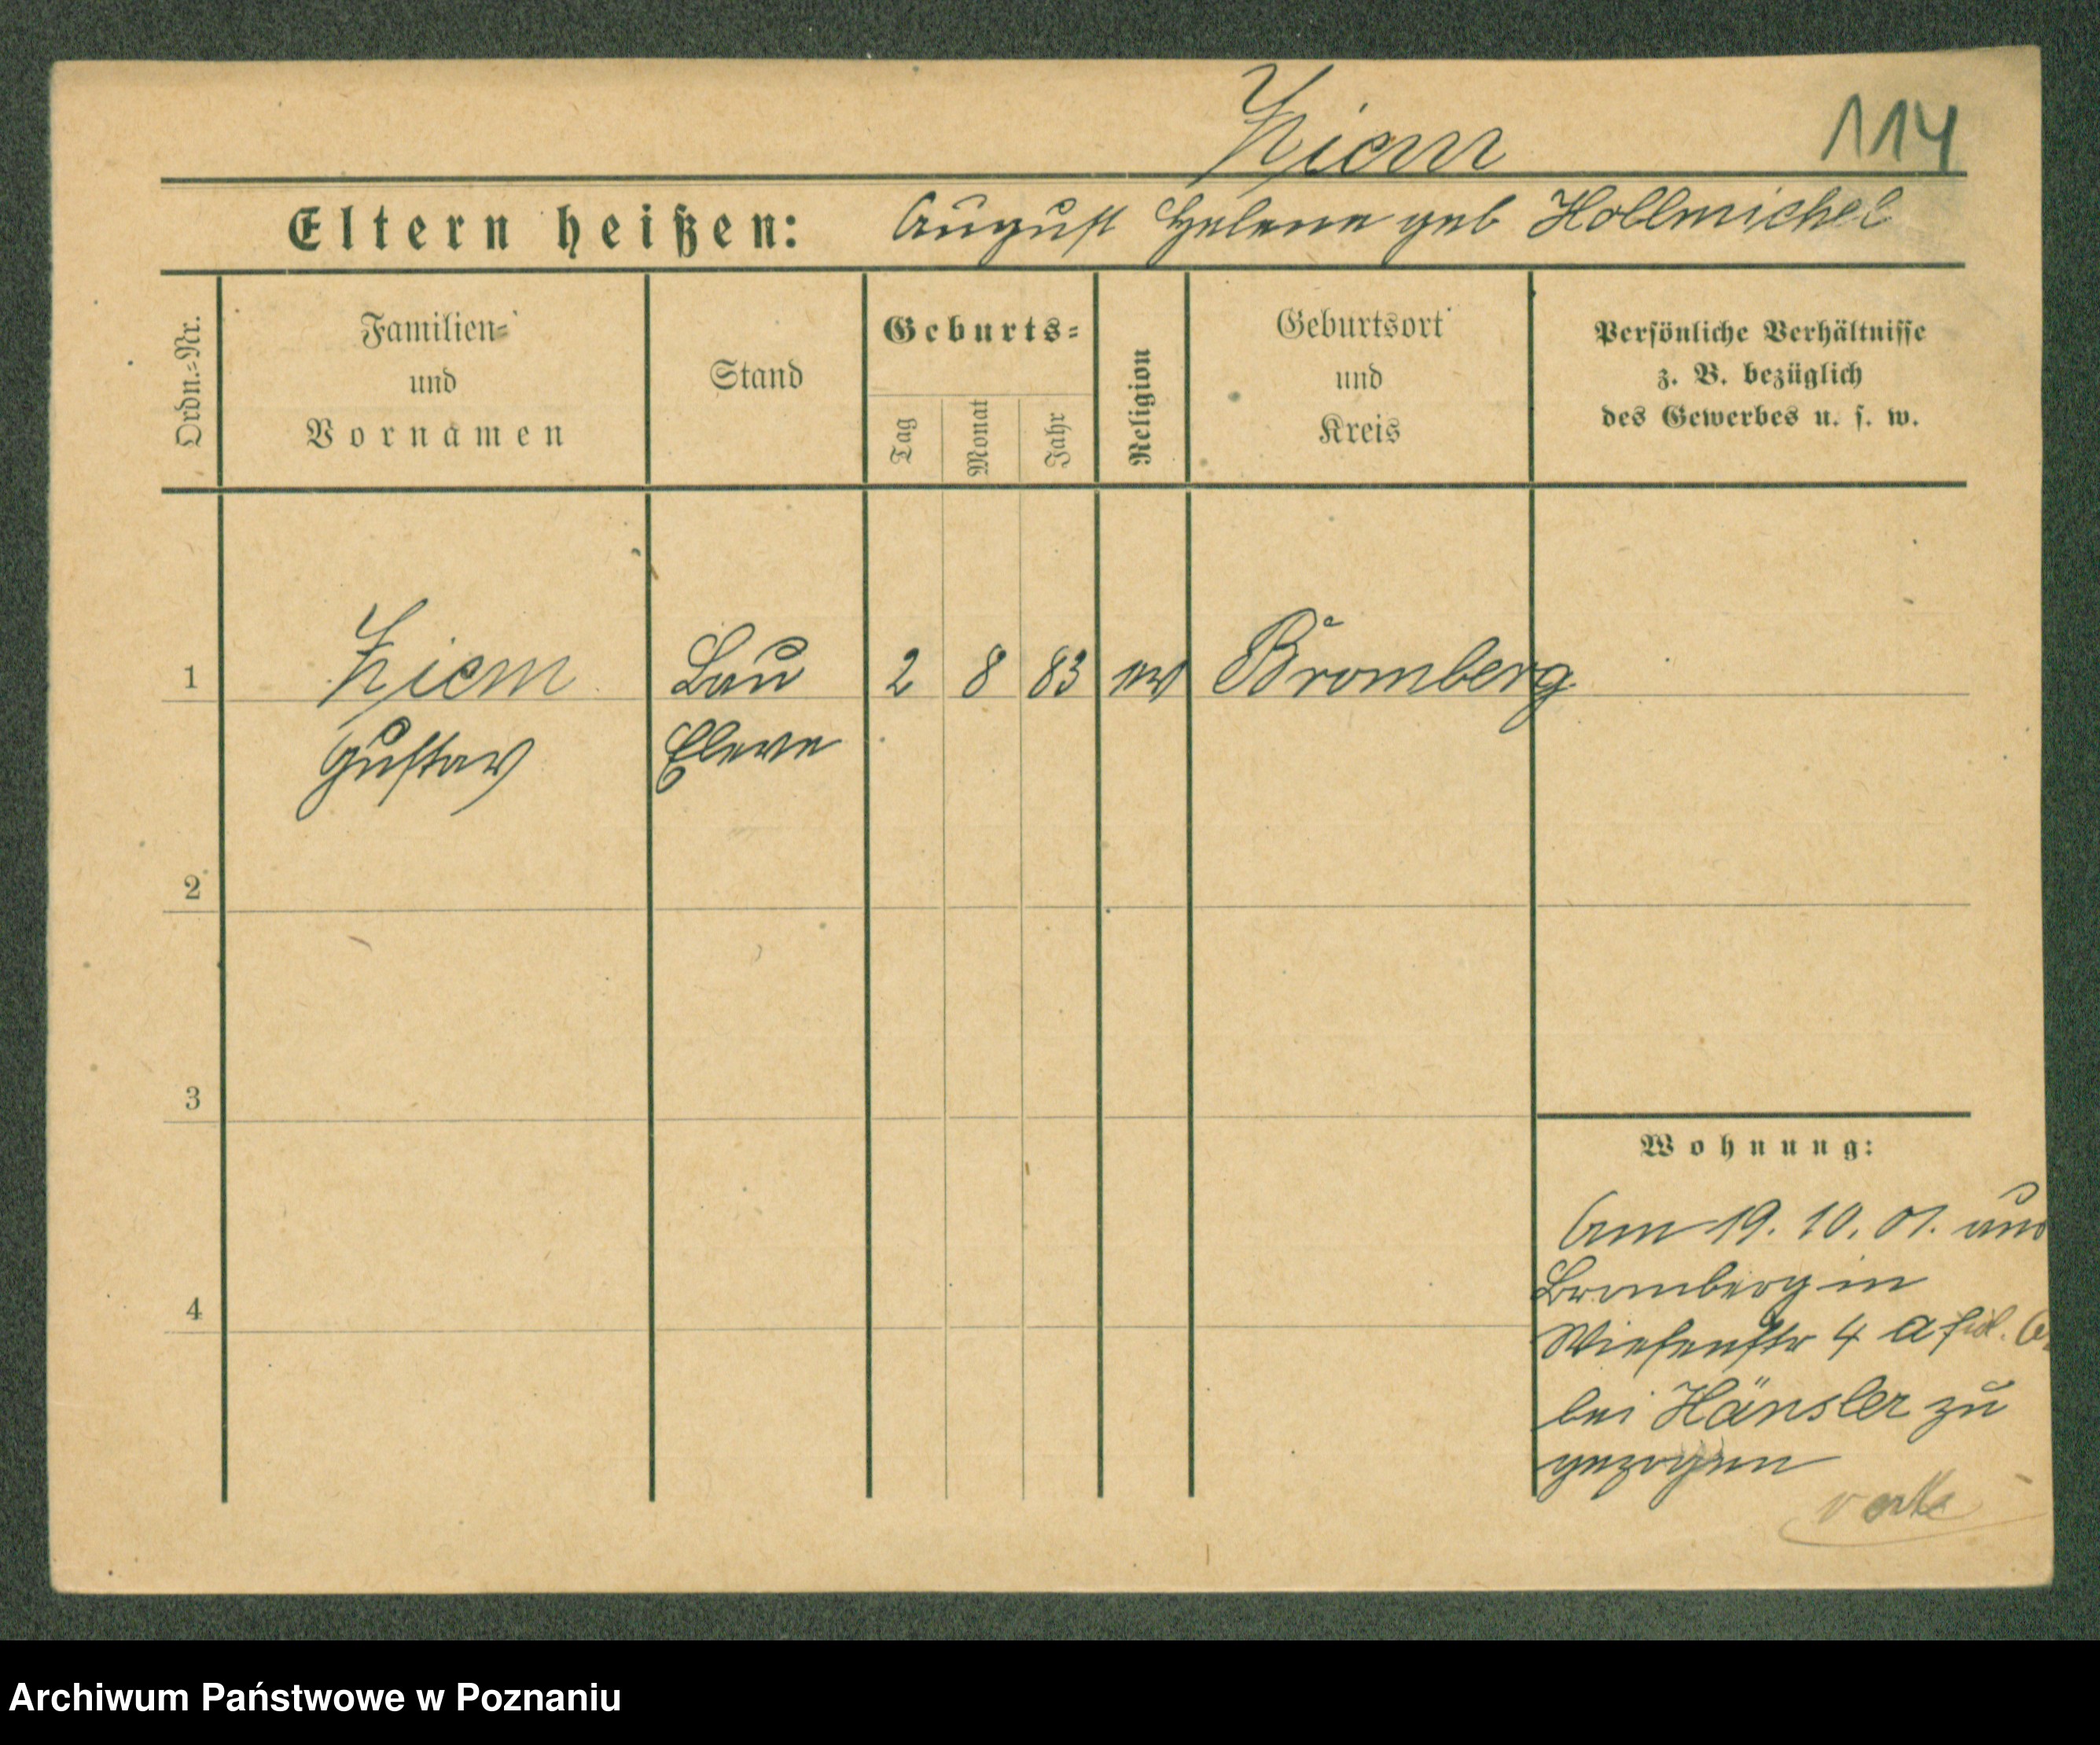 Ziem
114
Eltern heißen: August Helene geb Hollmichel
Ordn.-Nr.
Familien-
und
Vornamen
Stand
Geburts-
Tag
Monat
Jahr
Religion
Geburtsort
und
Kreis
Persönliche Verhältnisse
z. B. bezüglich
des Gewerbes u. s. w.
1 Ziem Bau 2 8 83 ev Bromberg
Gustav Eleve
2
3
4
Wohnung:
Am 19. 10. 01. aus
Bromberg in
Wiesenstr 4 a
bei Hänsler zu
gezogen
verte
Archiwum Państwowe w Poznaniu